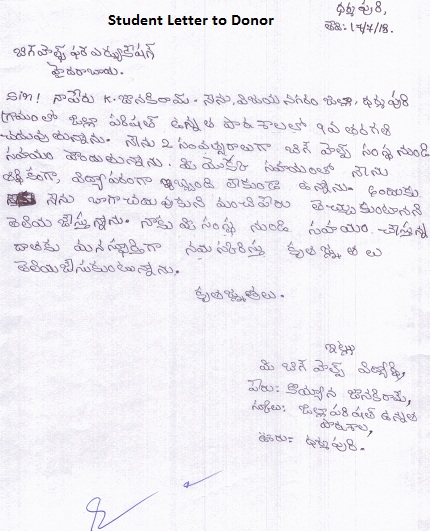 Student Letter to Donor
ధర్మపురి,
తేది: 17/7/18.
బిగ్ హెల్ప్ ఫర్ ఎడ్యుకేషన్
హైదరాబాదు.
సార్! నాపేరు K. జానకిరామ్. నేను, విజయనగరం జిల్లా, ధర్మపురి
గ్రామంలో జిల్లా పరిషత్ ఉన్నత పాఠశాలలో 10వ తరగతి
చదువుతున్నాను. నేను 2 సంవత్సరాలుగా బిగ్ హెల్ప్ సంస్థ నుండి
సహాయం పొందుతున్నాను. మీ యొక్క సహాయంతో నేను
ఆర్థికంగా, విద్యాపరంగా ఇబ్బంది లేకుండా ఉన్నాను. అందుకు
నేను బాగా చదువుకుని మంచి పేరు తెచ్చుకుంటానని
తెలియచేస్తున్నాను. నాకు మీ సంస్థ నుండి సహాయం చేస్తున్న
దాతకు మనస్ఫూర్తిగా నమస్కరిస్తు కృతజ్ఞతలు
తెలియజేసుకుంటున్నాను.
కృతజ్ఞతలు.
ఇట్లు
మీ బిగ్ హెల్ప్ విద్యార్థి,
పేరు: జానకిరామ్,
స్కూలు: జిల్లా పరిషత్ ఉన్నత
పాఠశాల,
ఊరు: ధర్మపురి.